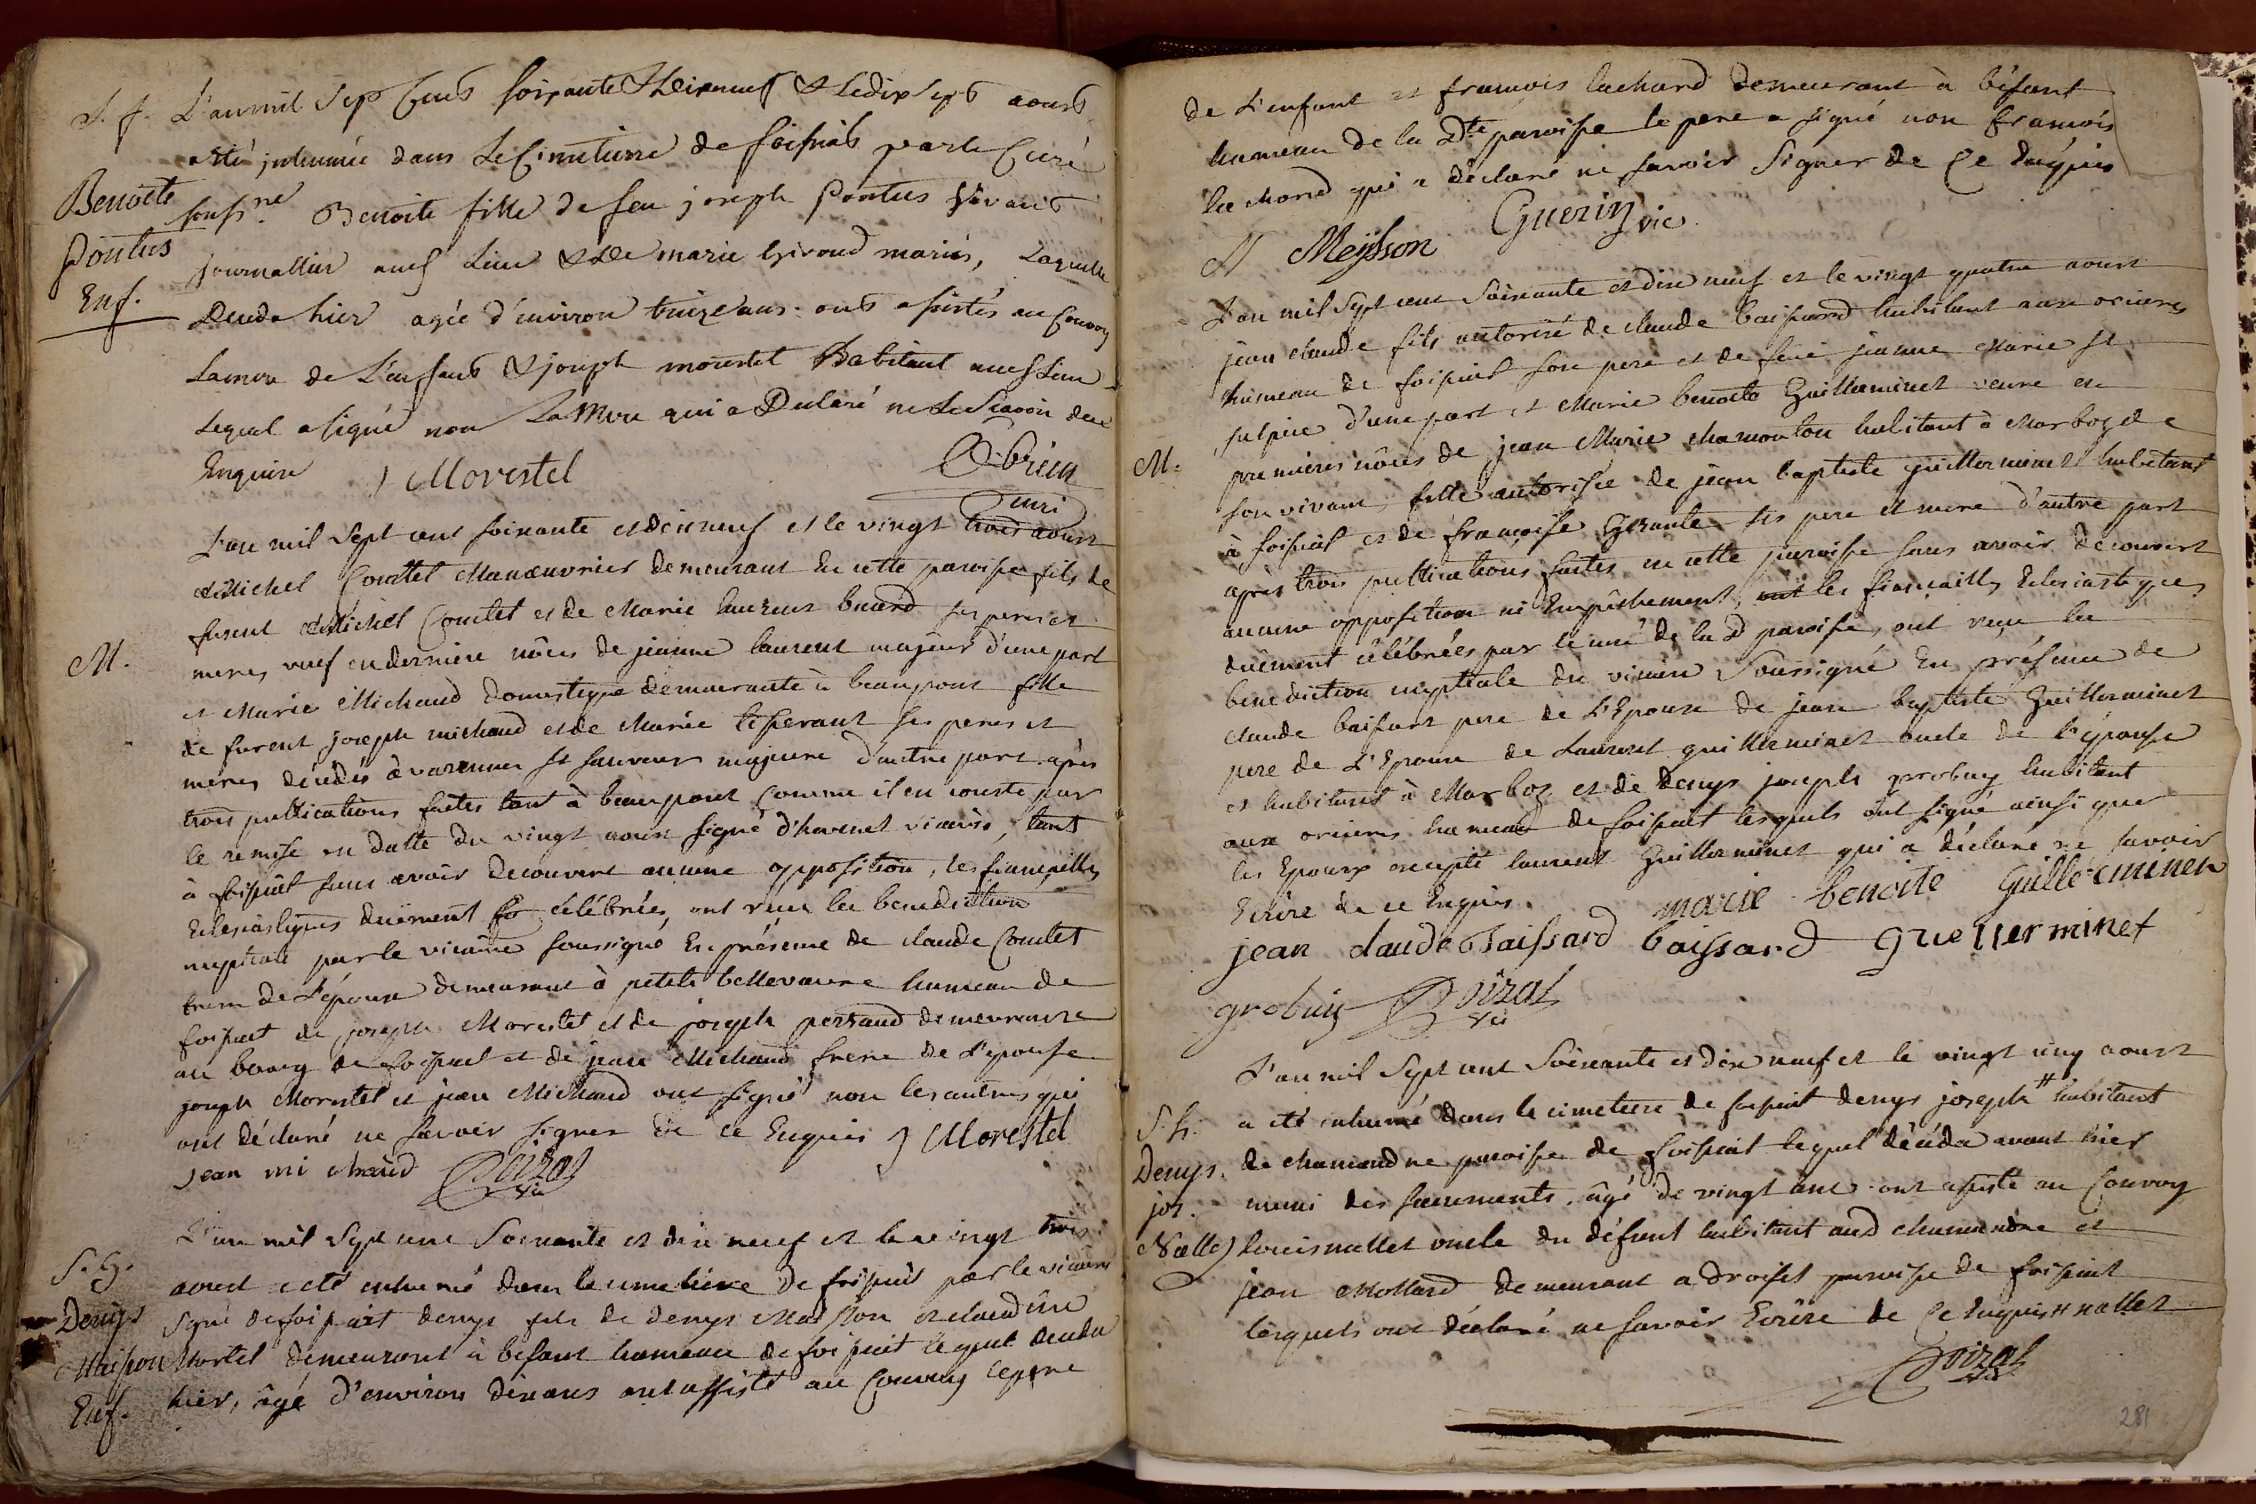 S. f. L'an mil sept cens soixante & dixneuf & le dix sept aoust
a été inhumée dans le cimetierre de foissiat par le curé
Benoite souss.né Benoite fille de feu joseph Pontus vivant
Pontus journallier aud lieu & de marie Giroud mariés, laquelle
Enf. deceda hier agée d'environ treize ans. ont assistés au convoy
la mere de l'enfant & joseph morestel habitant aud lieu
lequel a signé non la Mere qui a declaré ne le scavoir de ce
Enquise J Morestel
curé
L'an mil sept cent soixante et dix neuf et le vingt trois aoust
Michel Comtet Manœuvrier demeurant en cette paroisse fils de
furent Michel Comtet et de Marie buard ses peres et
M. meres, veuf en derniere nôces de jeanne laurent majeur d'une part
et Marie Michaud domestique demeurante à beaupont fille
de furent joseph michaud et de Marie ses peres et
meres décédés à varennes st sauveur majeure d'autre part après
trois publications faites tant à beaupont comme il en conste par
le remise en datte du vingt aoust signé d'havenet vicaire, tant
à foissiat sans avoir decouvert aucune opposition, les fiançailles
Eclesiastiques duëment célébrées, ont reçu la benediction
nuptiale par le vicaire soussigné En présence de claude Comtet
frere de L'époux demeurant à petite bellevavre hameau de
foissiat de joseph Morestel et de joseph perraud demeurants
au bourg de foissiat et de jean Michaud frere de L'epouse
joseph Morestel et jean Michaud ont signé non les autres qui
ont déclaré ne savoir signer de ce Enquis J Morestel
jean mi chaud Poizat
vic
L'an mil sept cent soixante et dix neuf et le vingt trois
S. h. aoust a été inhumé dans le cimetiere de foissiat par le vicaire
Denys signé de foissiat denys fils de denys Maisson et claudine
Maisson Mortel demeurant à besant hameau de foissiat lequel deceda
Enf. hier, âgé d'environ dix ans ont assisté au Convoy le pere
de L'enfant et francois lachard demeurant à bésant
hameau de la Dte paroisse le pere a signé non francois
lachard qui a déclaré ne savoir signer de Ce Enquis
Meysson Guerin vic
L'an mil sept cent soixante et dix neuf et le vingt quatre aoust
jean claude fils autorisé de claude baissard habitant aux oriers
hameau de foissiat son pere et de feüe jeanne Marie st
sulpice d'une part et Marie benoite Guillerminet veuve en
M. premieres nôces de jean Marie chamonton habitant à Marboz de
son vivant, fille autorisée de jean baptiste guillerminet habitant
à foissiat et de francoise ses pere et mere d'autre part
après trois publications faites en cette paroisse sans avoir decouvert
aucune opposition ni Empêchement, les fiançailles Eclesiastiques
duëment célébrées par le curé de la d paroisse, ont reçu la
benediction nuptiale du vicaire soussigné En présence de
claude baissard pere de L'Epoux de jean baptiste Guillerminet
pere de L'Epouse de Laurent guillerminet oncle de l'épouse
et habitant à Marboz et de denys joseph grobuy habitant
aux oriers hameau de foissiat lesquels ont signé ainsi que
les Epoux excepté laurent Guillerminet qui a déclaré ne savoir
Ecrire de ce Enquis. marie benoite Guillerminet
jean claude Baissard baissard guellerminet
grobuis Poizat
vic
L'an mil sept cent soixante et dix neuf et le vingt un aoust
S. h. a été inhumé dans le cimetiere de foissiat denys joseph # habitant
Denys. de chamandre paroisse de foissiat lequel décéda avant hier
jos. muni des sacrements, âgé de vingt ans. ont assisté au Convoy
Nallet louis nallet oncle du défunt habitant aud chamandre et
jean Mollard demeurant a droisel paroisse de foissiat
lesquels ont déclaré ne savoir Ecrire de Ce Enquis # nallet
Poizat
vic
281